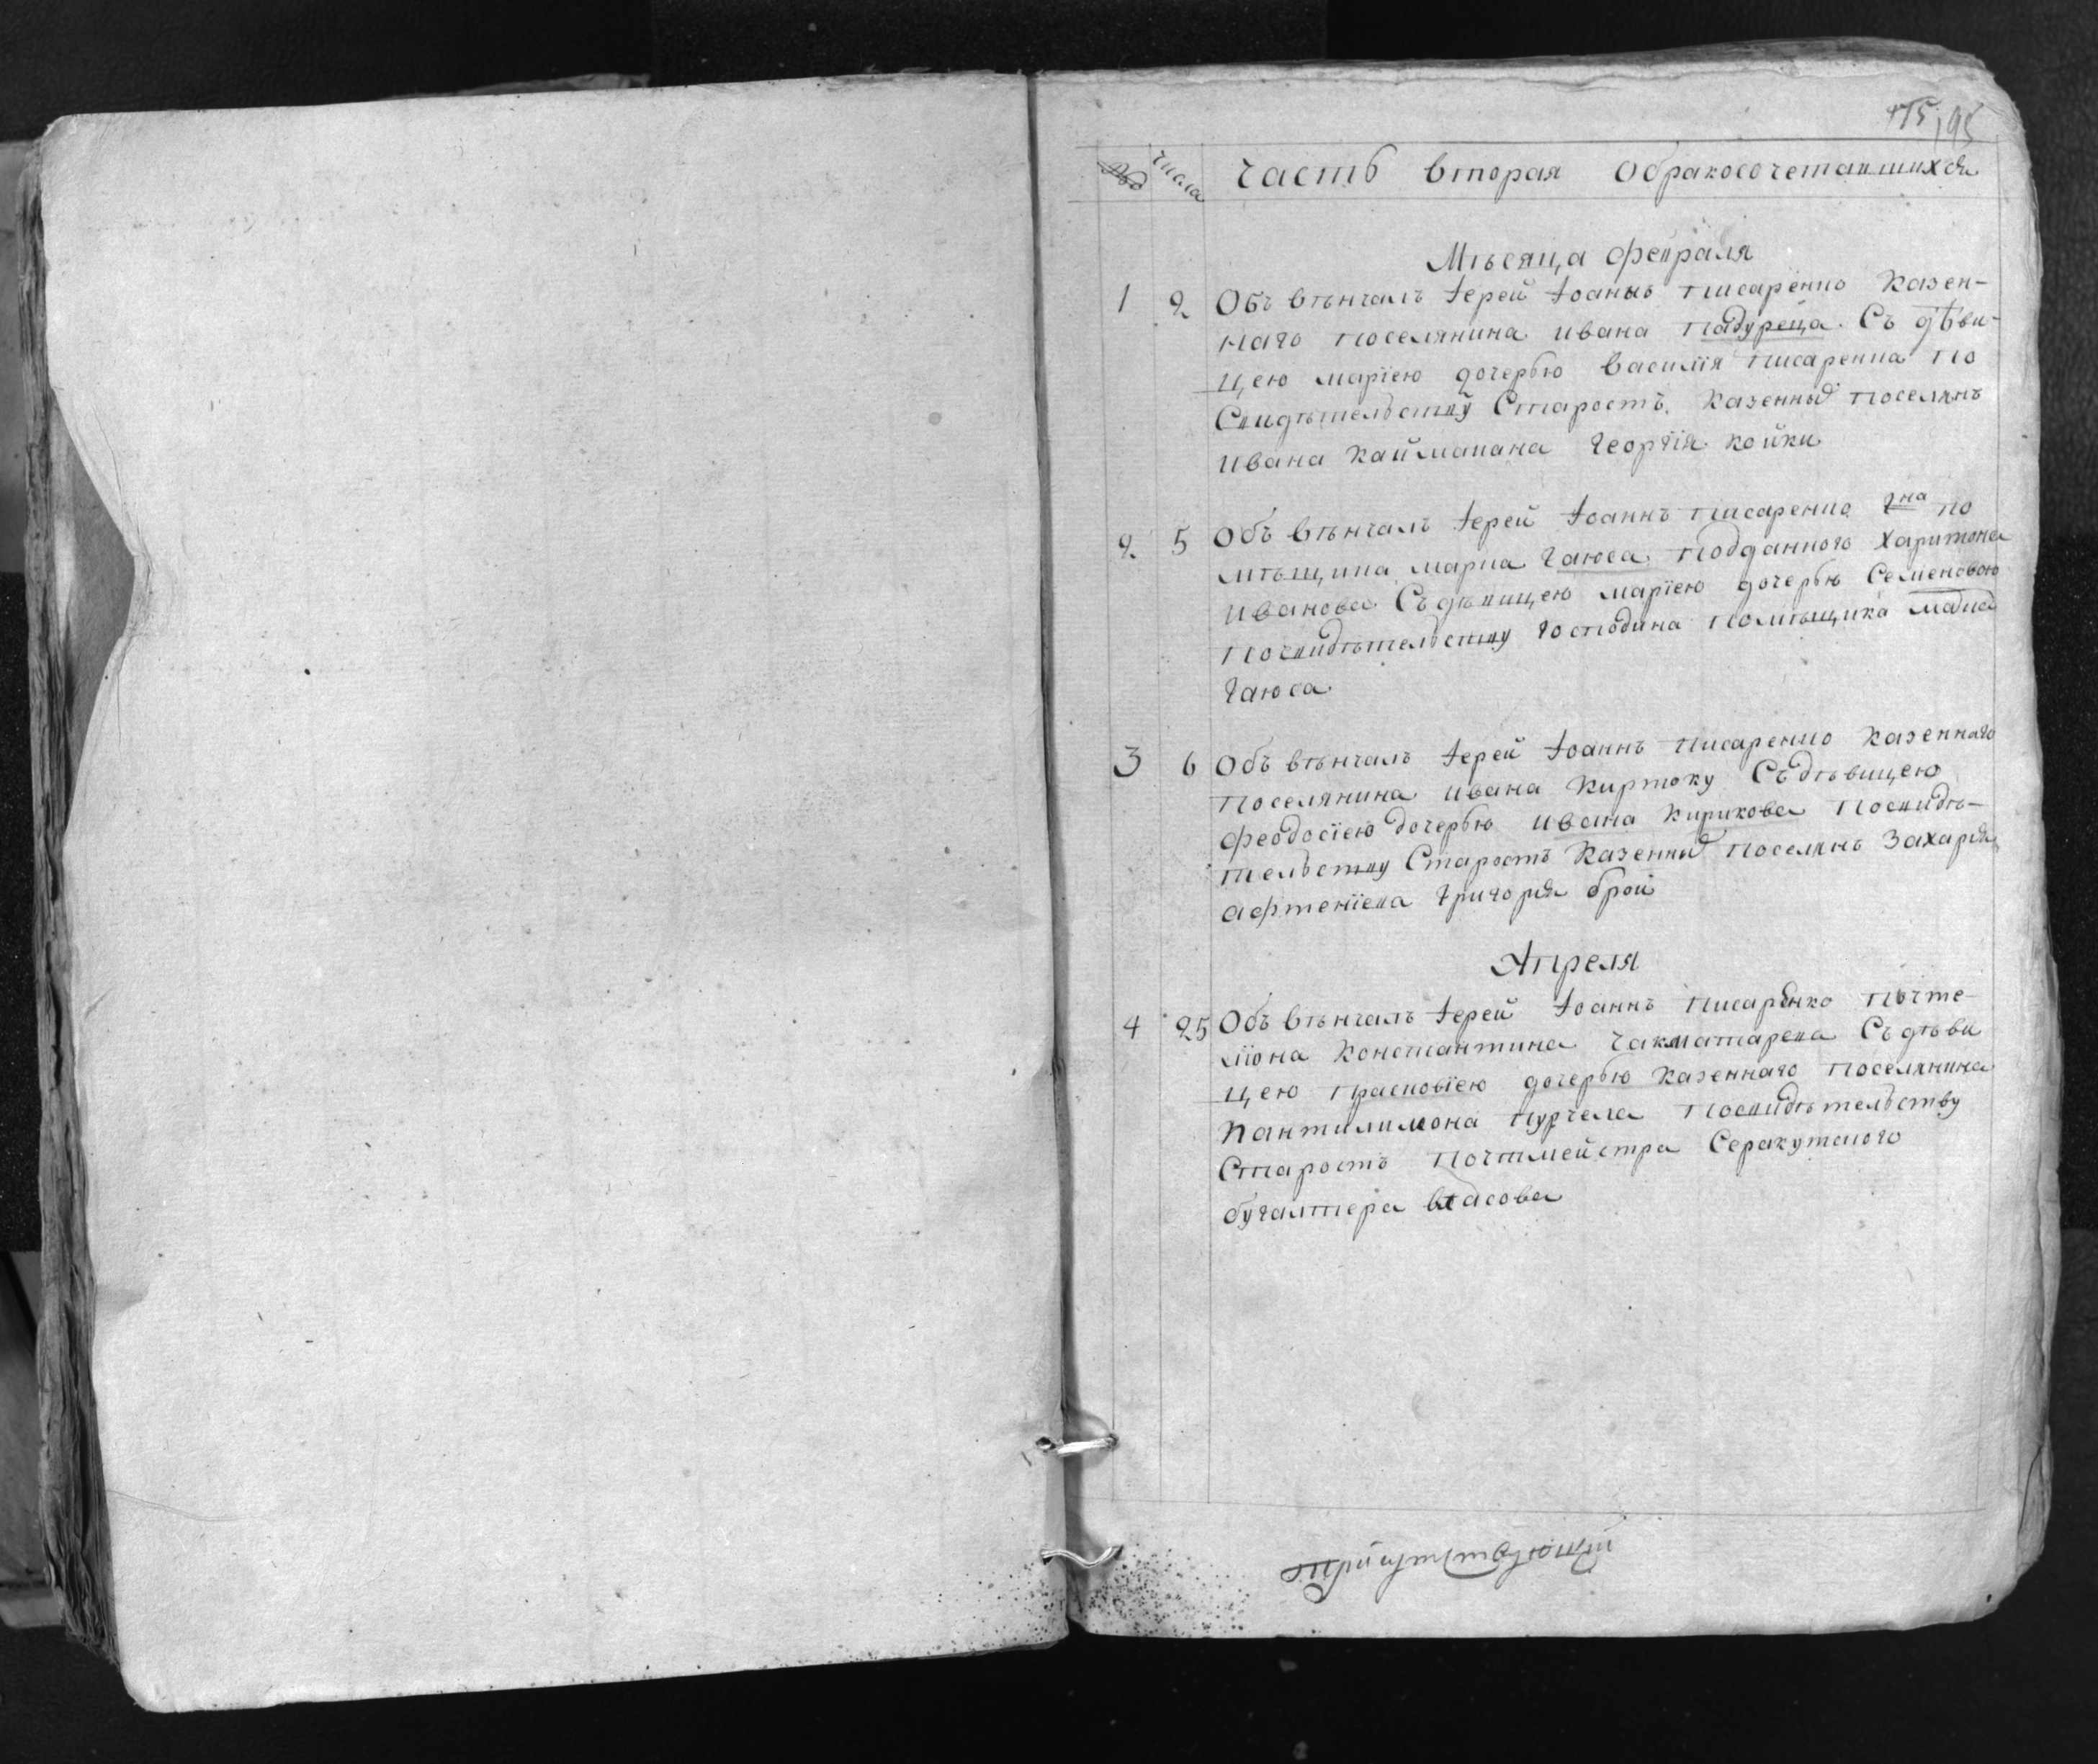 175 195
числа Часть вторая Обракосочетавшихся
Мѣсяца февраля
1 2 Объ вѣнчалъ Іерей Іоаннъ писаренко казен-
наго поселянина ивана падуреца Съ дѣви-
цею маріею дочерью василія писаренка по
Свидѣтельству Старостъ казенны поселянъ
ивана каймакана Георгія койки
2 5 Объ вѣнчалъ Іерей Іоаннъ писаренко Гна по
мѣщика марка гаюса подданного харитона
иванова Съ дѣвицею маріею дочерью Семеновою
посвидѣтельству Господина помѣщика марка
гаюса
3 6 Объ вѣнчалъ Іерей Іоаннъ писаренко казеннаго
поселянина ивана киртоку Съ дѣвицею
феодосіею дочерью ивана кирикова посвидѣ-
тельству Старостъ казенны поселянъ Захарія
афтеніева Григорія брой
Апреля
4 25 Объ вѣнчалъ Іерей Іоаннъ писаренко почте-
ліона константина чакматарева Съ дѣви
цею прасковіею дочерью казеннаго поселянина
пантилимона пурчела посвидѣтельству
Старостъ почтмейстра Серакутского
бугалтера власова
присутствующій